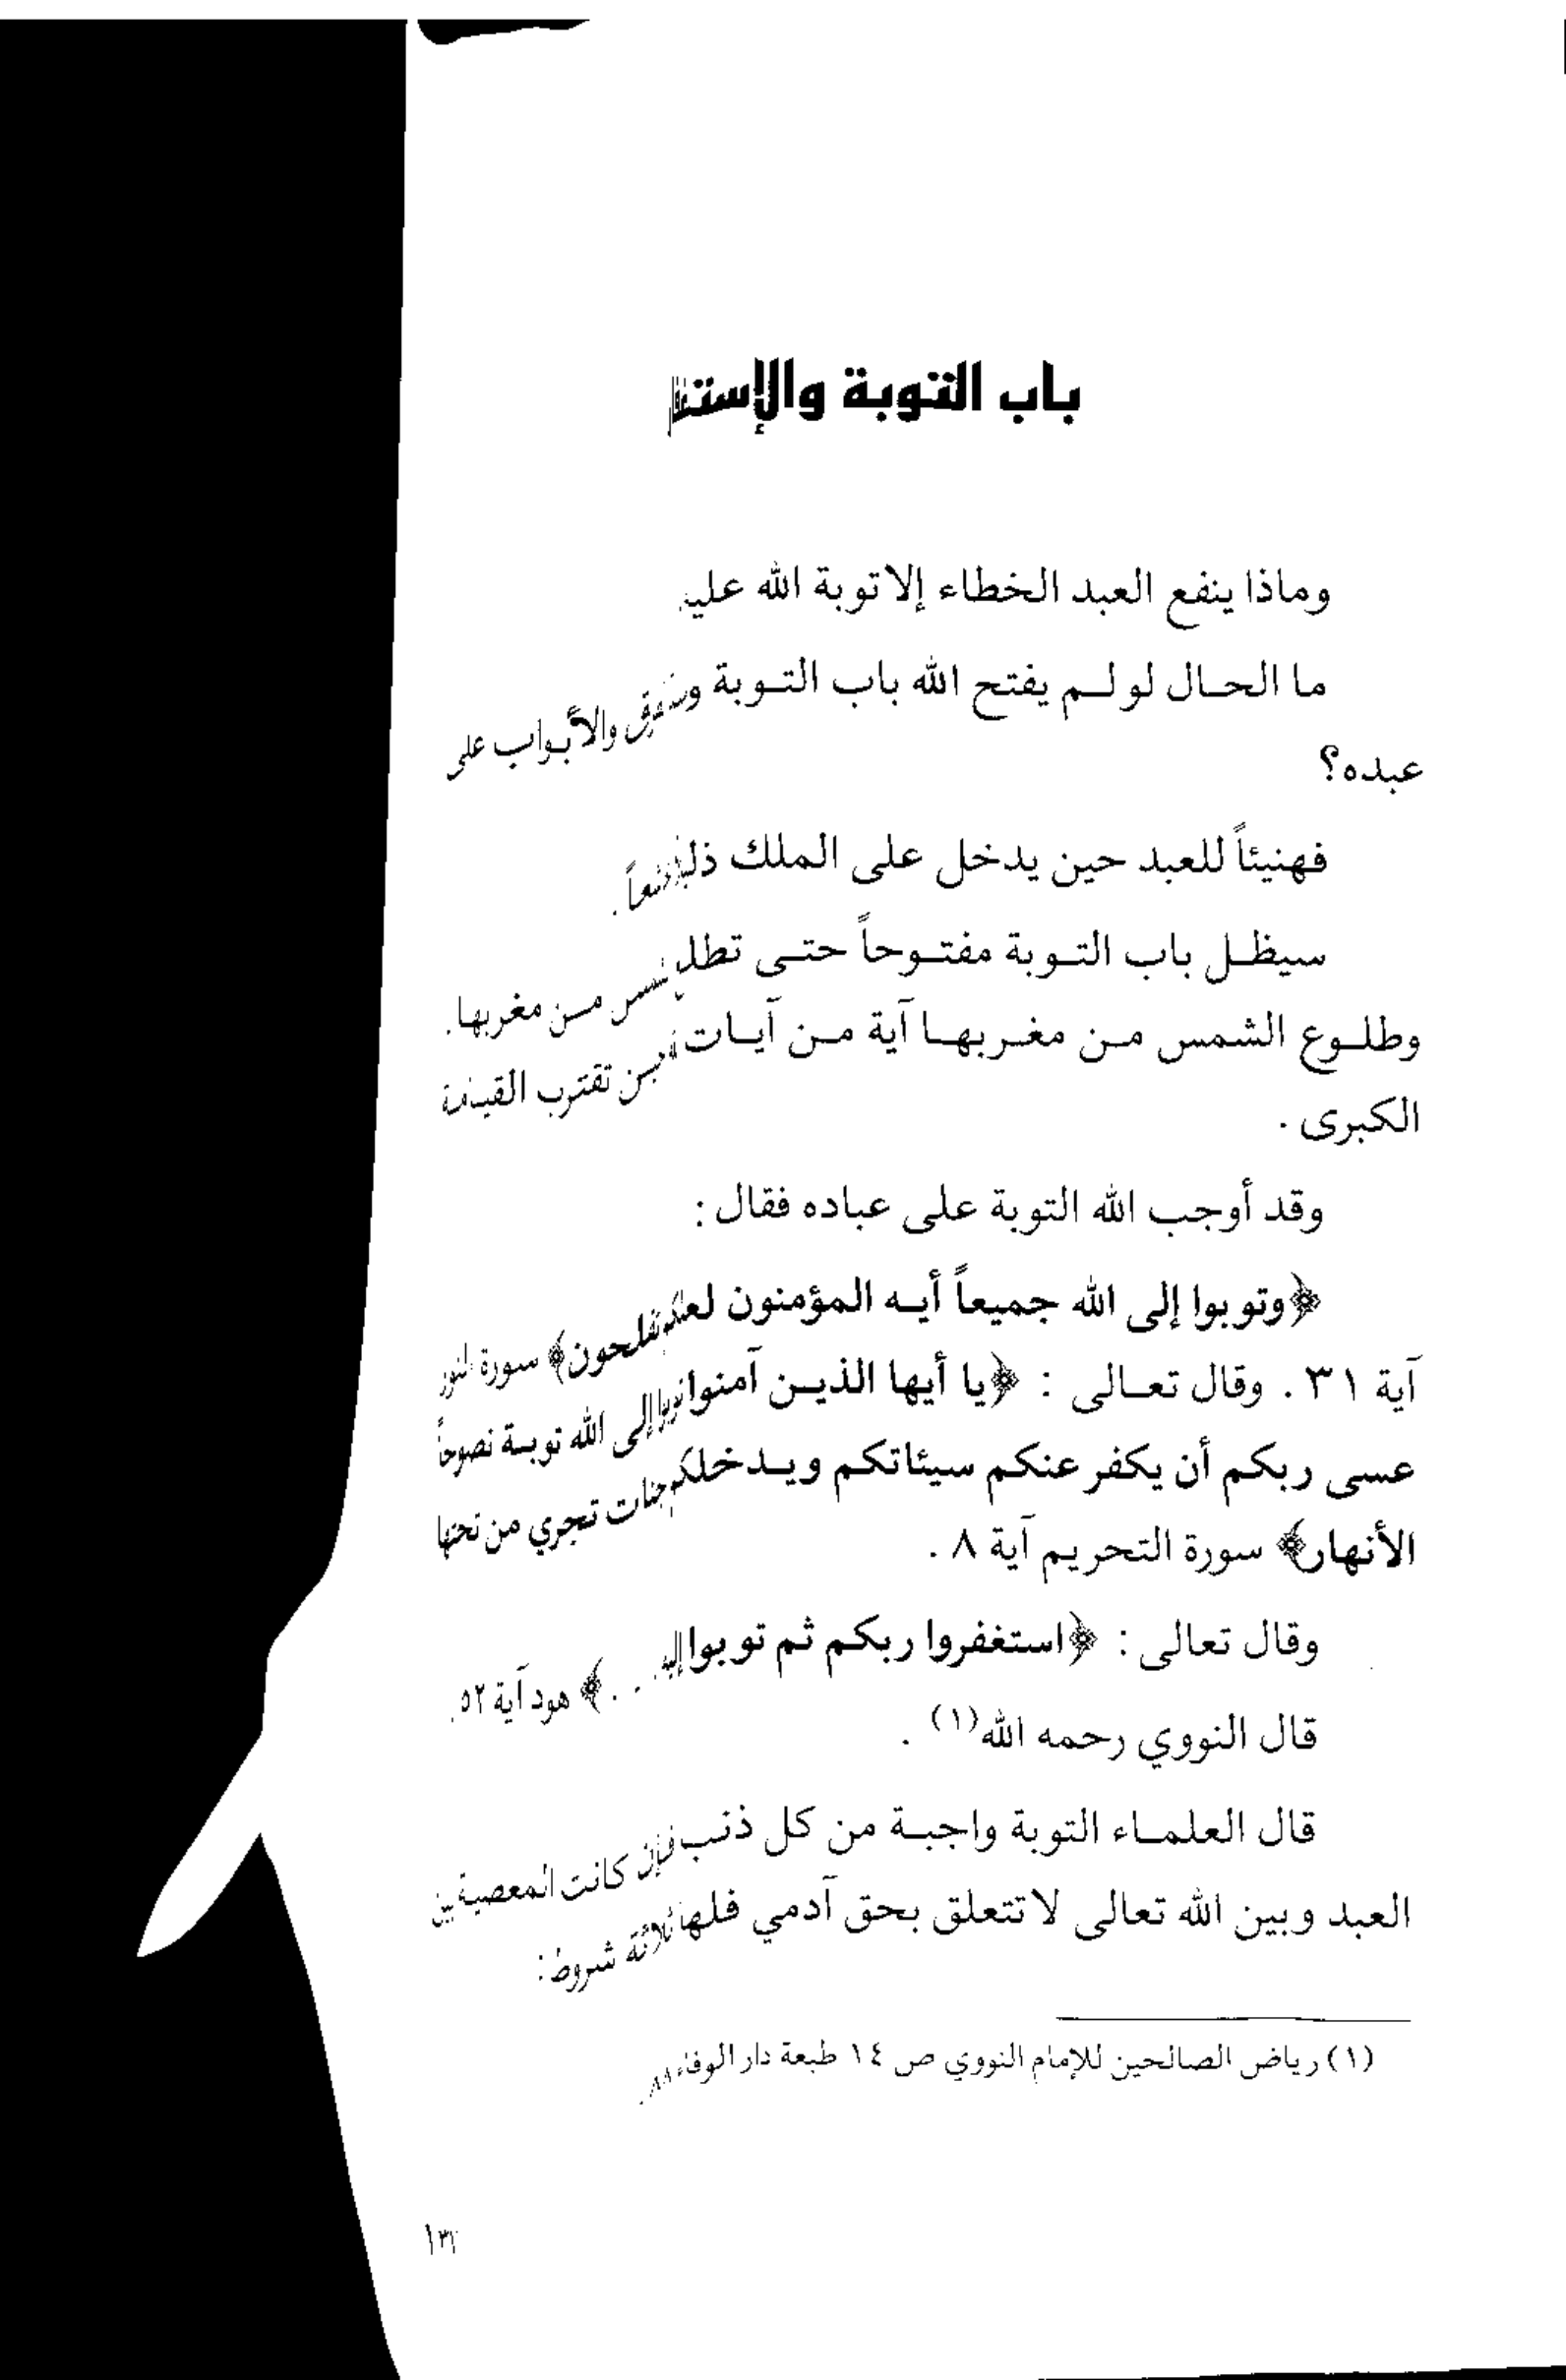 باب التوبة والإستغفار
وماذا ينفع العبد الخطاء إلا توبة الله عليه
ما الحال لو لم يفتح الله باب التوبة والأبواب على
عبده؟
فهنيئاً للعبد حين يدخل على الملك
سيظل باب التوبة مفتوحاً حتى تطلع الشمس من مغربها.
وطلوع الشمس من مغربها آية من آيات تقترب القيامة
الكبرى .
وقد أوجب الله التوبة على عباده فقال :
﴿وتوبوا إلى الله جميعاً أيه المؤمنون لعلكم تفلحون﴾ سورة النور
آية ٣١ . وقال تعالى : ﴿يا أيها الذين آمنوا توبوا إلى الله توبة نصوحاً
عسى ربكم أن يكفر عنكم سيئاتكم ويدخلكم جنات تجري من تحتها
الأنهار﴾ سورة التحريم آية ٨ .
وقال تعالى : ﴿استغفروا ربكم ثم توبوا إليه . . .﴾ هود آية ٥٢.
قال النووي رحمه الله(١) .
قال العلماء التوبة واجبة من كل ذنب فإن كانت المعصية بين
العبد وبين الله تعالى لا تتعلق بحق آدمي فلها ثلاثة شروط :
(١) رياض الصالحين للإمام النووي ص ١٤ طبعة دار الوفاء